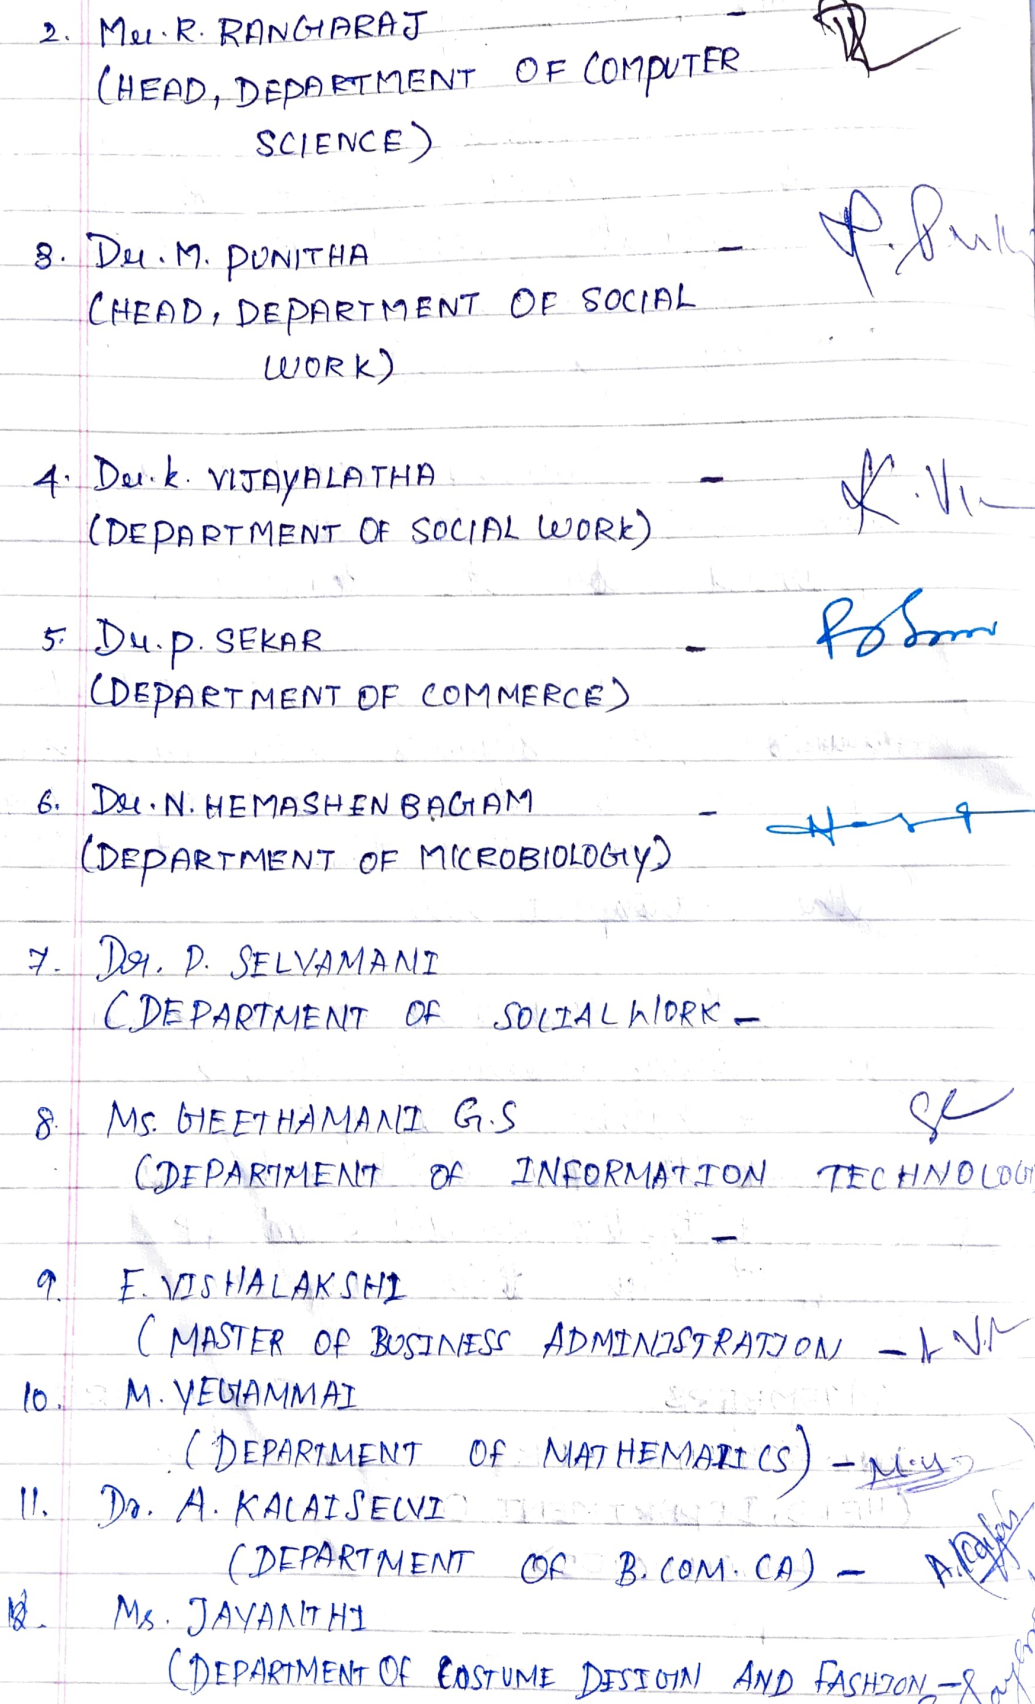 2. Mr. R. RANGARAJ -
(HEAD, DEPARTMENT OF COMPUTER
SCIENCE)
3. Dr. M. PUNITHA -
(HEAD, DEPARTMENT OF SOCIAL
WORK)
4. Dr. K. VIJAYALATHA - K. Vi
(DEPARTMENT OF SOCIAL WORK)
5. Dr. P. SEKAR -
(DEPARTMENT OF COMMERCE)
6. Dr. N. HEMASHENBAGAM -
(DEPARTMENT OF MICROBIOLOGY)
7. Dr. D. SELVAMANI
(DEPARTMENT OF SOCIAL WORK -
8. Ms. GEETHAMANI G.S
(DEPARTMENT OF INFORMATION TECHNOLOG
-
9. E. VISHALAKSHI
(MASTER OF BUSINESS ADMINISTRATION -
10. M. YEGAMMAI
(DEPARTMENT OF MATHEMATICS) - M.y
11. Dr. A. KALAISELVI
(DEPARTMENT OF B. COM. CA) -
12. Ms. JAYANTHI
(DEPARTMENT OF COSTUME DESIGN AND FASHION -